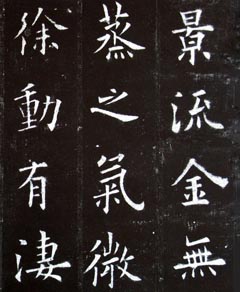 景流金無
蒸之氣微
徐動有淒